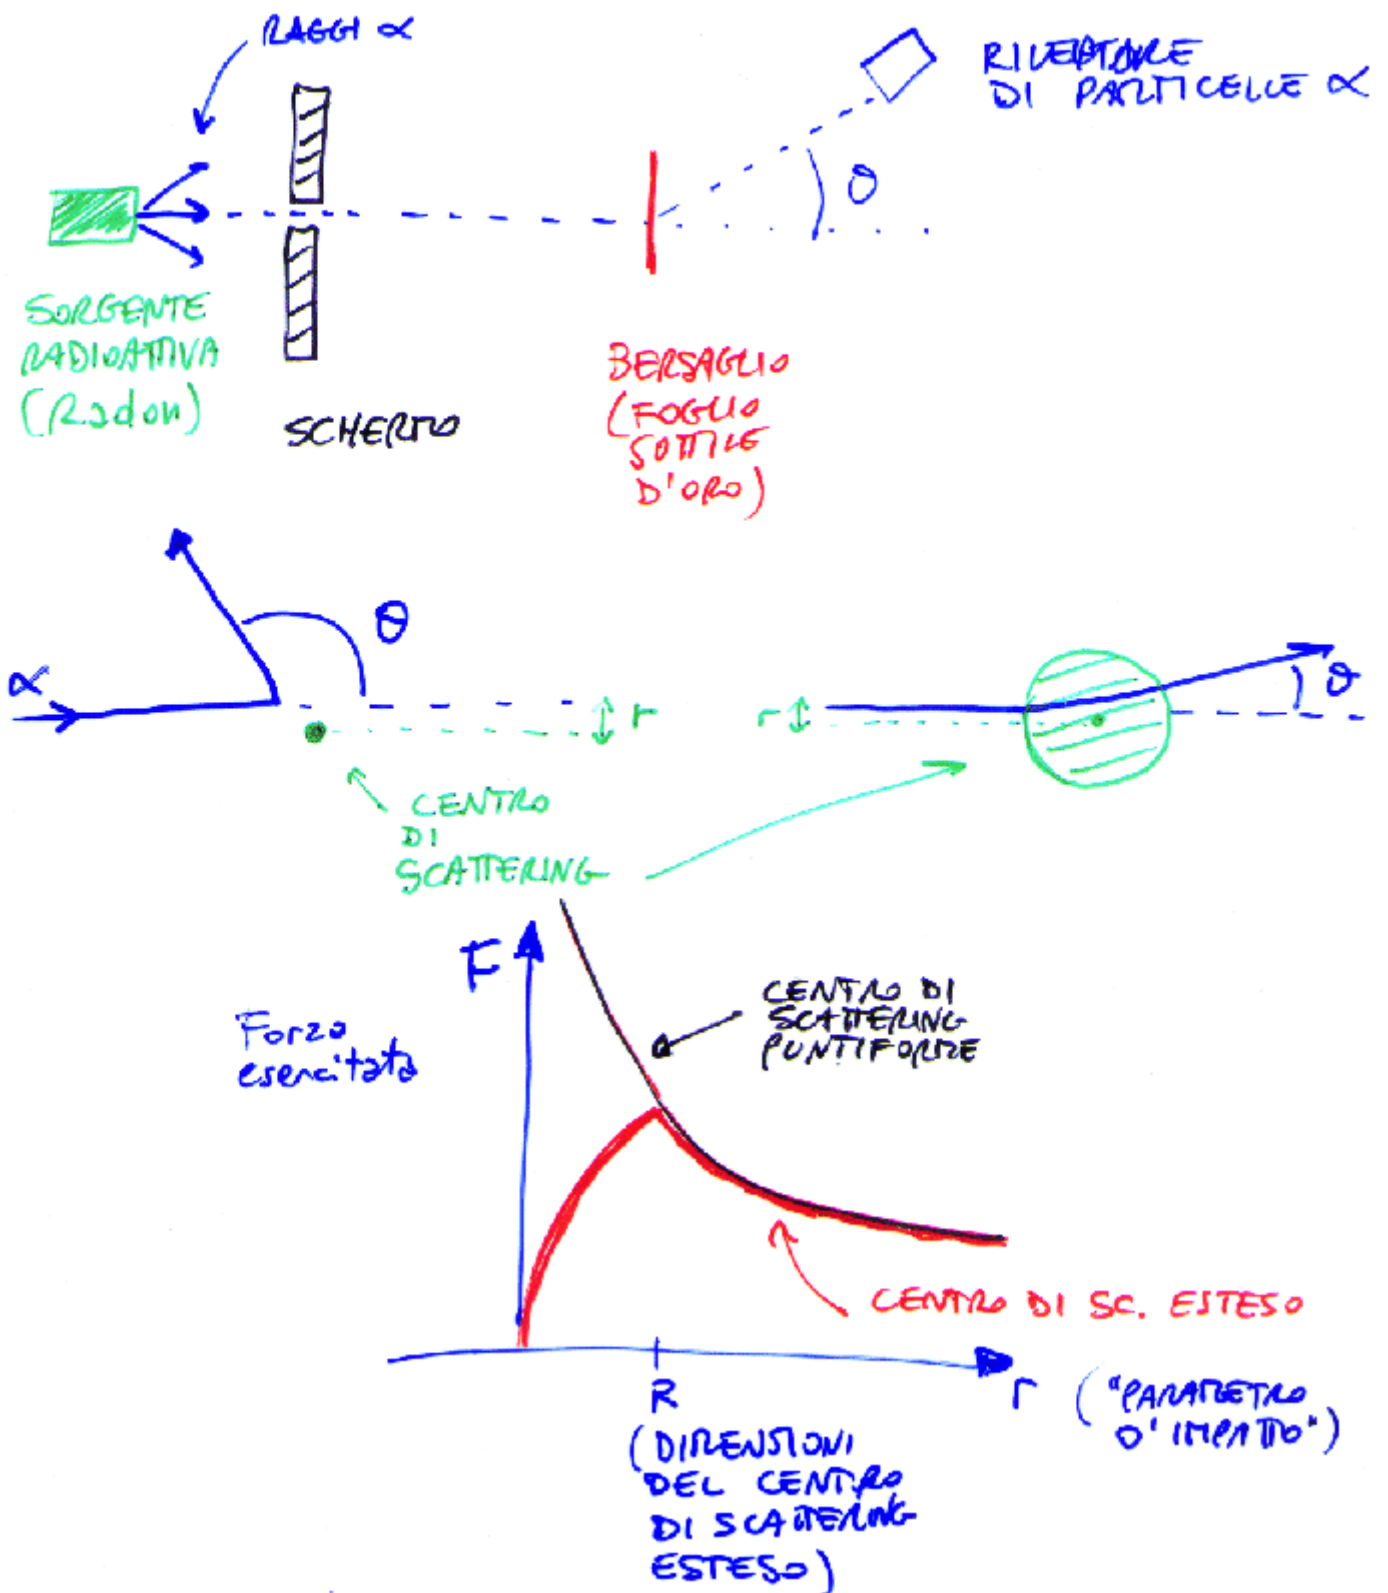 RAGGI α
RILEVATORE
DI PARTICELLE α
θ
SORGENTE
RADIOATTIVA
(Radon)
SCHERMO
BERSAGLIO
(FOGLIO
SOTTILE
D'ORO)
α
θ
r
r
θ
CENTRO
DI
SCATTERING
F
Forza
esercitata
CENTRO DI
SCATTERING
PUNTIFORME
CENTRO DI SC. ESTESO
R
(DIMENSIONI
DEL CENTRO
DI SCATTERING
ESTESO)
r ("PARAMETRO
D'IMPATTO")